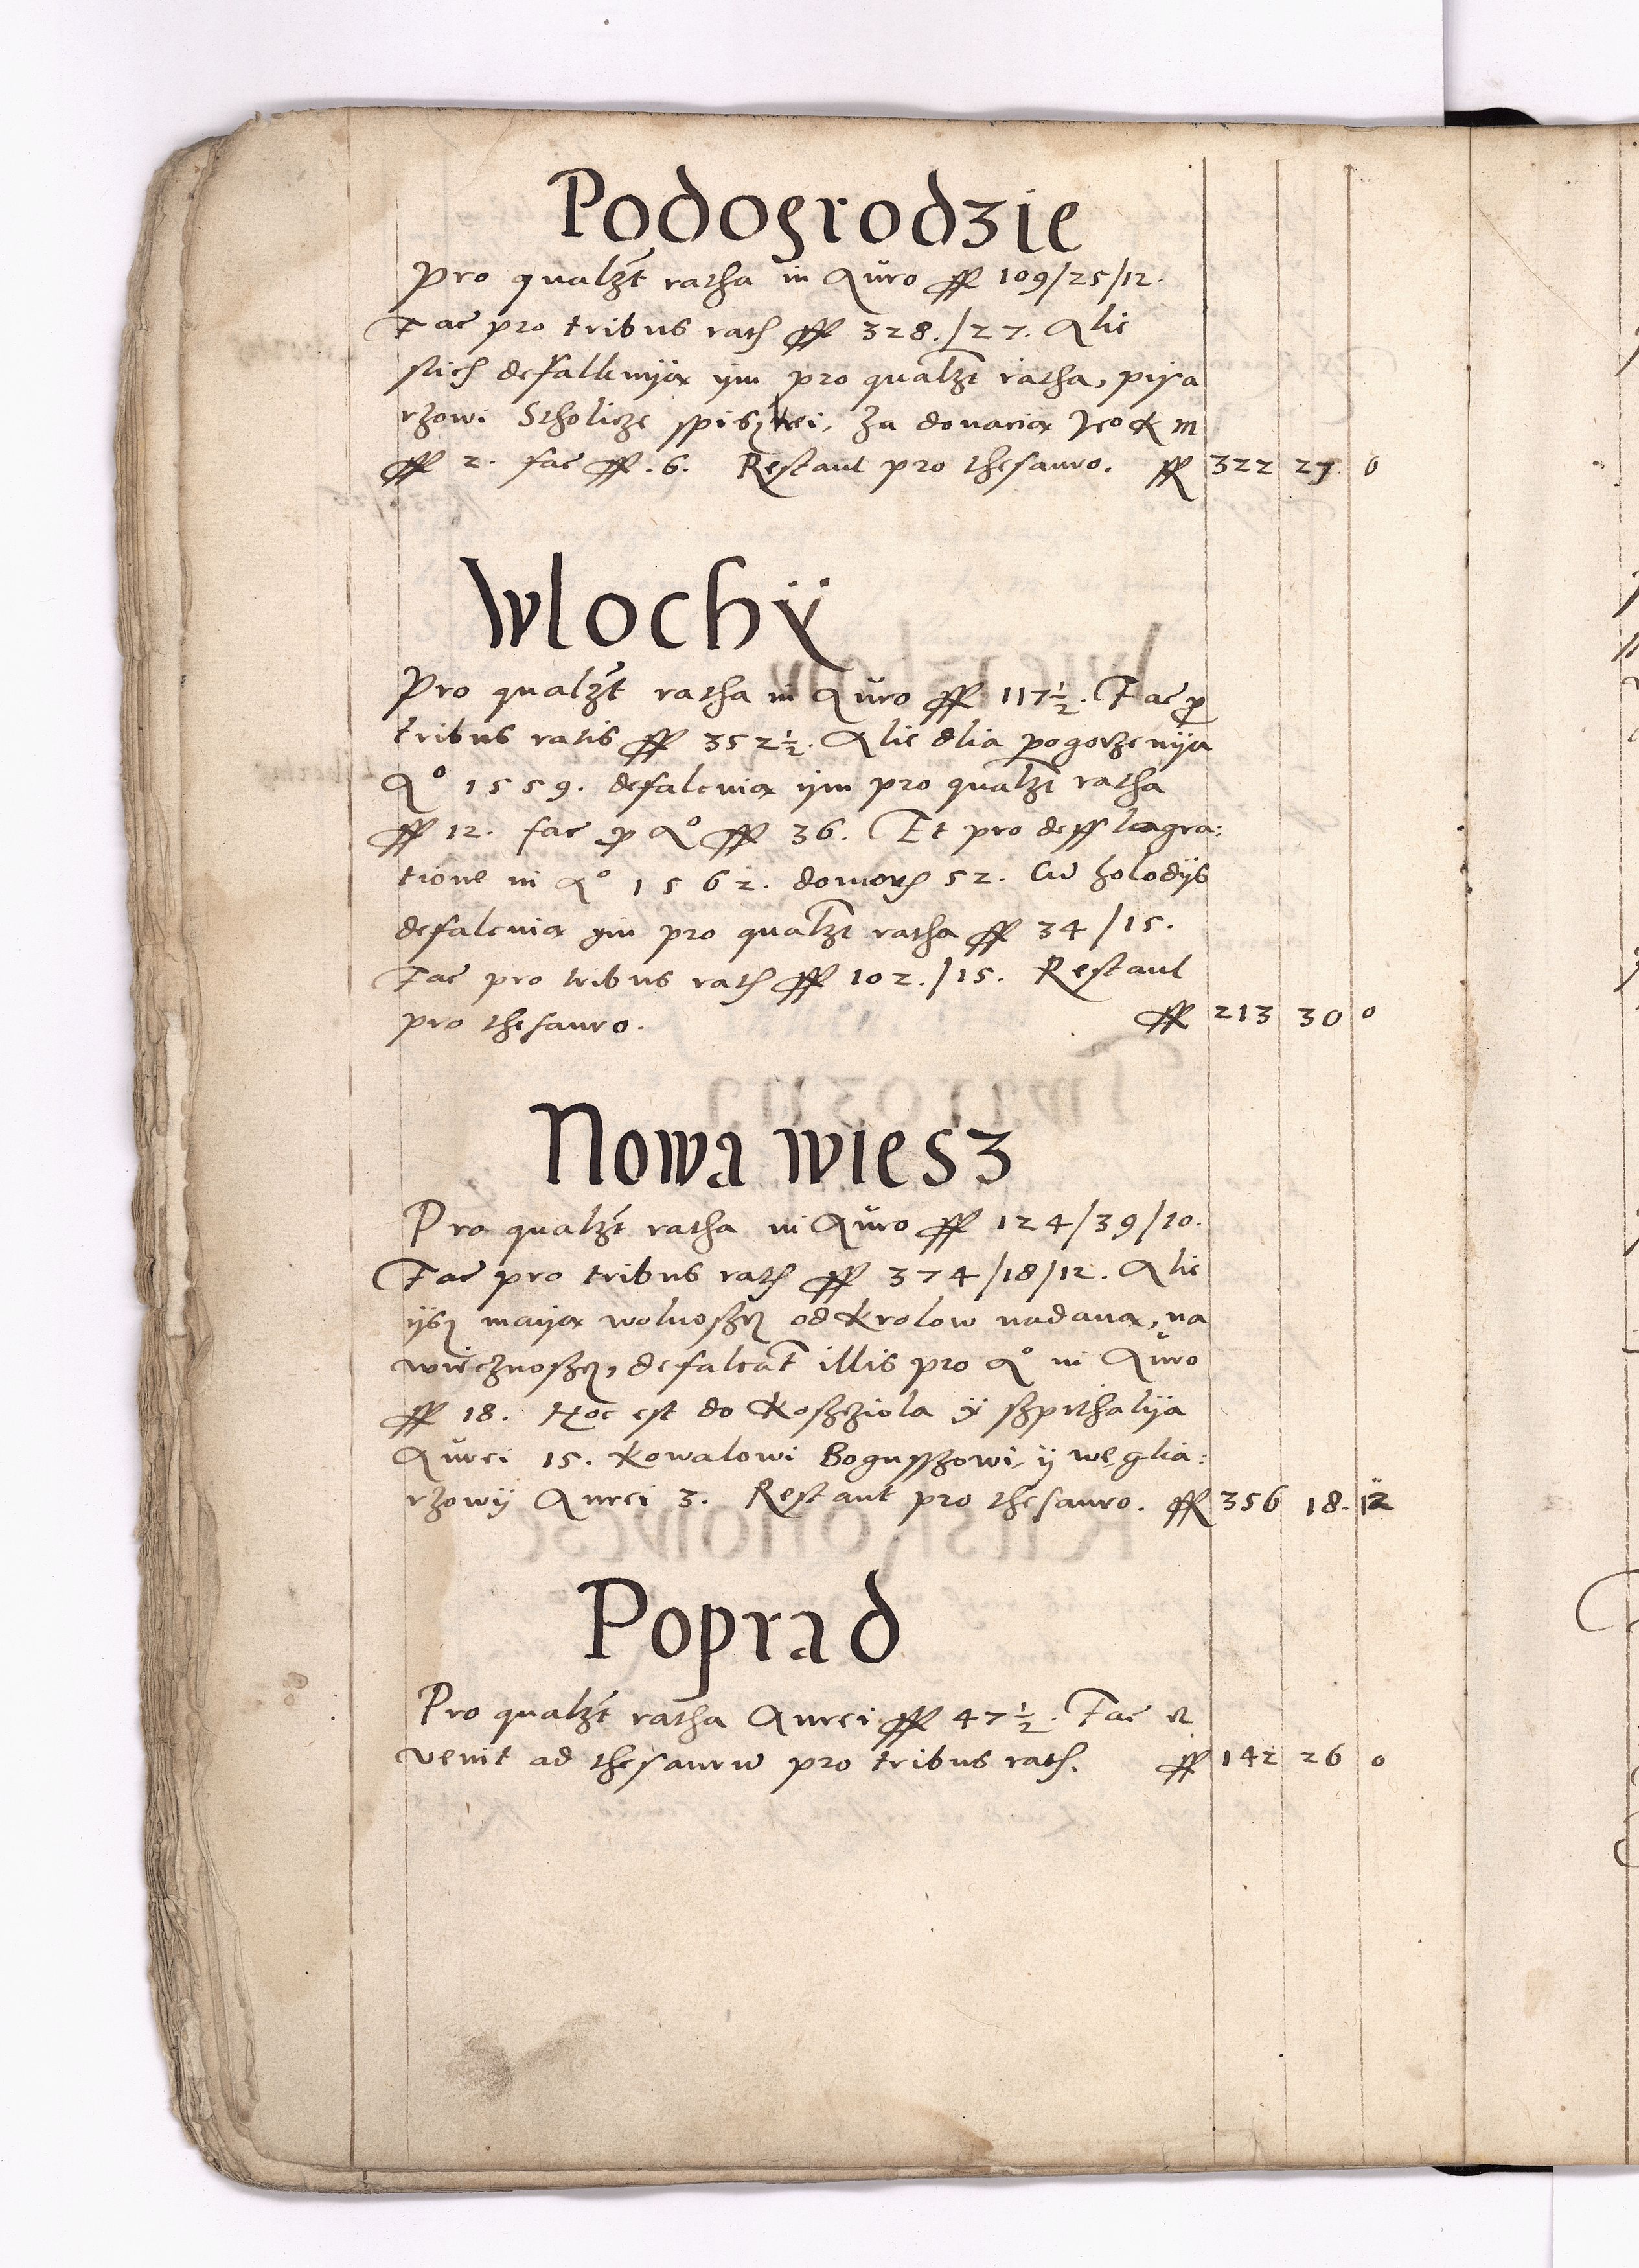 Podogrodzie
Pro qualzt ratha in Auro ff 109/25/12.
Fac pro tribus rath ff 328./27. Alie
stich defalkuyą ym pro qualzt ratha, pisa
rzowi Stholicze spiskei, za donacią Jeo K M
ff 2. fac ff. 6. Restant pro thesauro. ff 322 27 0
Wlochÿ
Pro qualzt ratha in Auro ff 117½. Fac p
tribus ratis ff 352½. Alie dlia pogorzenija
Aº 1559. defalcuią ijm pro qualzt ratha
ff 12. fac p Aº ff 36. Et pro deffliagra:
tione in Aº 1562. domorum 52. Cu zolodijs
defalcuią ym pro qualzt ratha ff 34/15.
Fac pro tribus rath ff 102./15. Restant
pro thesauro. ff 213 30 0
Nowa wiesz
Pro qualzt ratha in Auro ff 124/39/10.
Fac pro tribus rath ff 374/18/12. Alie
ijsz maiją wolnoszcz od Krolow nadaną, na
wiecznoszcz, defalcat illis pro Aº in Auro
ff 18. Hoc est do Koszcziola ÿ szpithalija
Aurei 15. Kowalowi Bogusszowi, ij weglia:
rzowij Aurei 3. Restant pro thesauro. ff 356 18. 12
Poprad
Pro qualzt ratha Aurei ff 47½. Fac et
venit ad thesauru pro tribus rath. ff 142 26 0